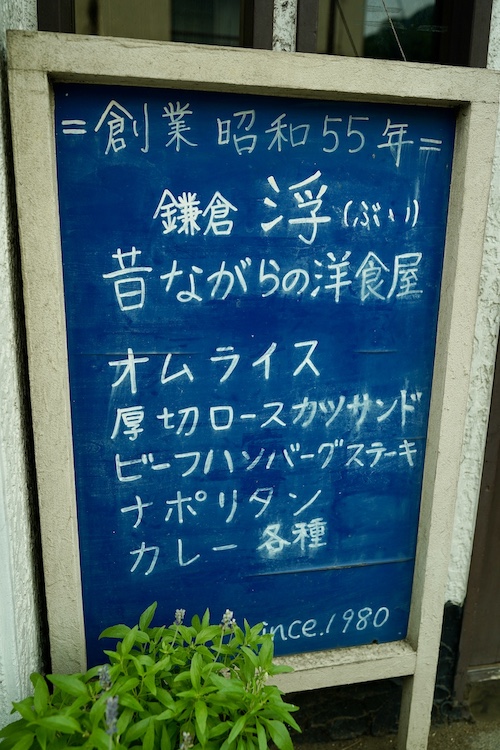 =創業 昭和55年=
鎌倉 浮(ぶい)
昔ながらの洋食屋
オムライス
厚切ロースカツサンド
ビーフハンバーグステーキ
ナポリタン
カレー 各種
since.1980